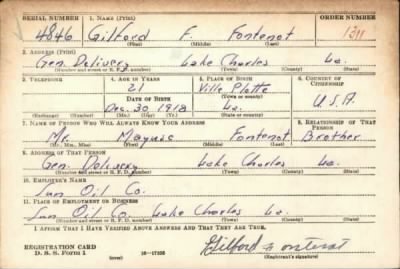 SERIAL NUMBER 1. NAME (Print) ORDER NUMBER
4846 Gilford F. Fontenot
(First) (Middle) (Last)
2. ADDRESS (Print)
Gen. Delivery Lake Charles La.
(Number and street or R. F. D. number) (Town) (County) (State)
3. TELEPHONE 4. AGE IN YEARS 5. PLACE OF BIRTH 6. COUNTRY OF CITIZENSHIP
21 Ville Platte
DATE OF BIRTH (Town or county)
Dec. 30 1918 La. U.S.A.
(Exchange) (Number) (Mo.) (Day) (Yr.) (State or country)
7. NAME OF PERSON WHO WILL ALWAYS KNOW YOUR ADDRESS 8. RELATIONSHIP OF THAT PERSON
Mr. Fontenot Brother
(Mr., Mrs., Miss) (First) (Middle) (Last)
9. ADDRESS OF THAT PERSON
Gen. Delivery Lake Charles La.
(Number and street or R. F. D. number) (Town) (County) (State)
10. EMPLOYER'S NAME
Sun Oil Co.
11. PLACE OF EMPLOYMENT OR BUSINESS
Sun Oil Co. Lake Charles La.
(Number and street or R. F. D. number) (Town) (County) (State)
I AFFIRM THAT I HAVE VERIFIED ABOVE ANSWERS AND THAT THEY ARE TRUE.
REGISTRATION CARD
D. S. S. Form 1 (over) Gilford Fontenot
(Registrant's signature)